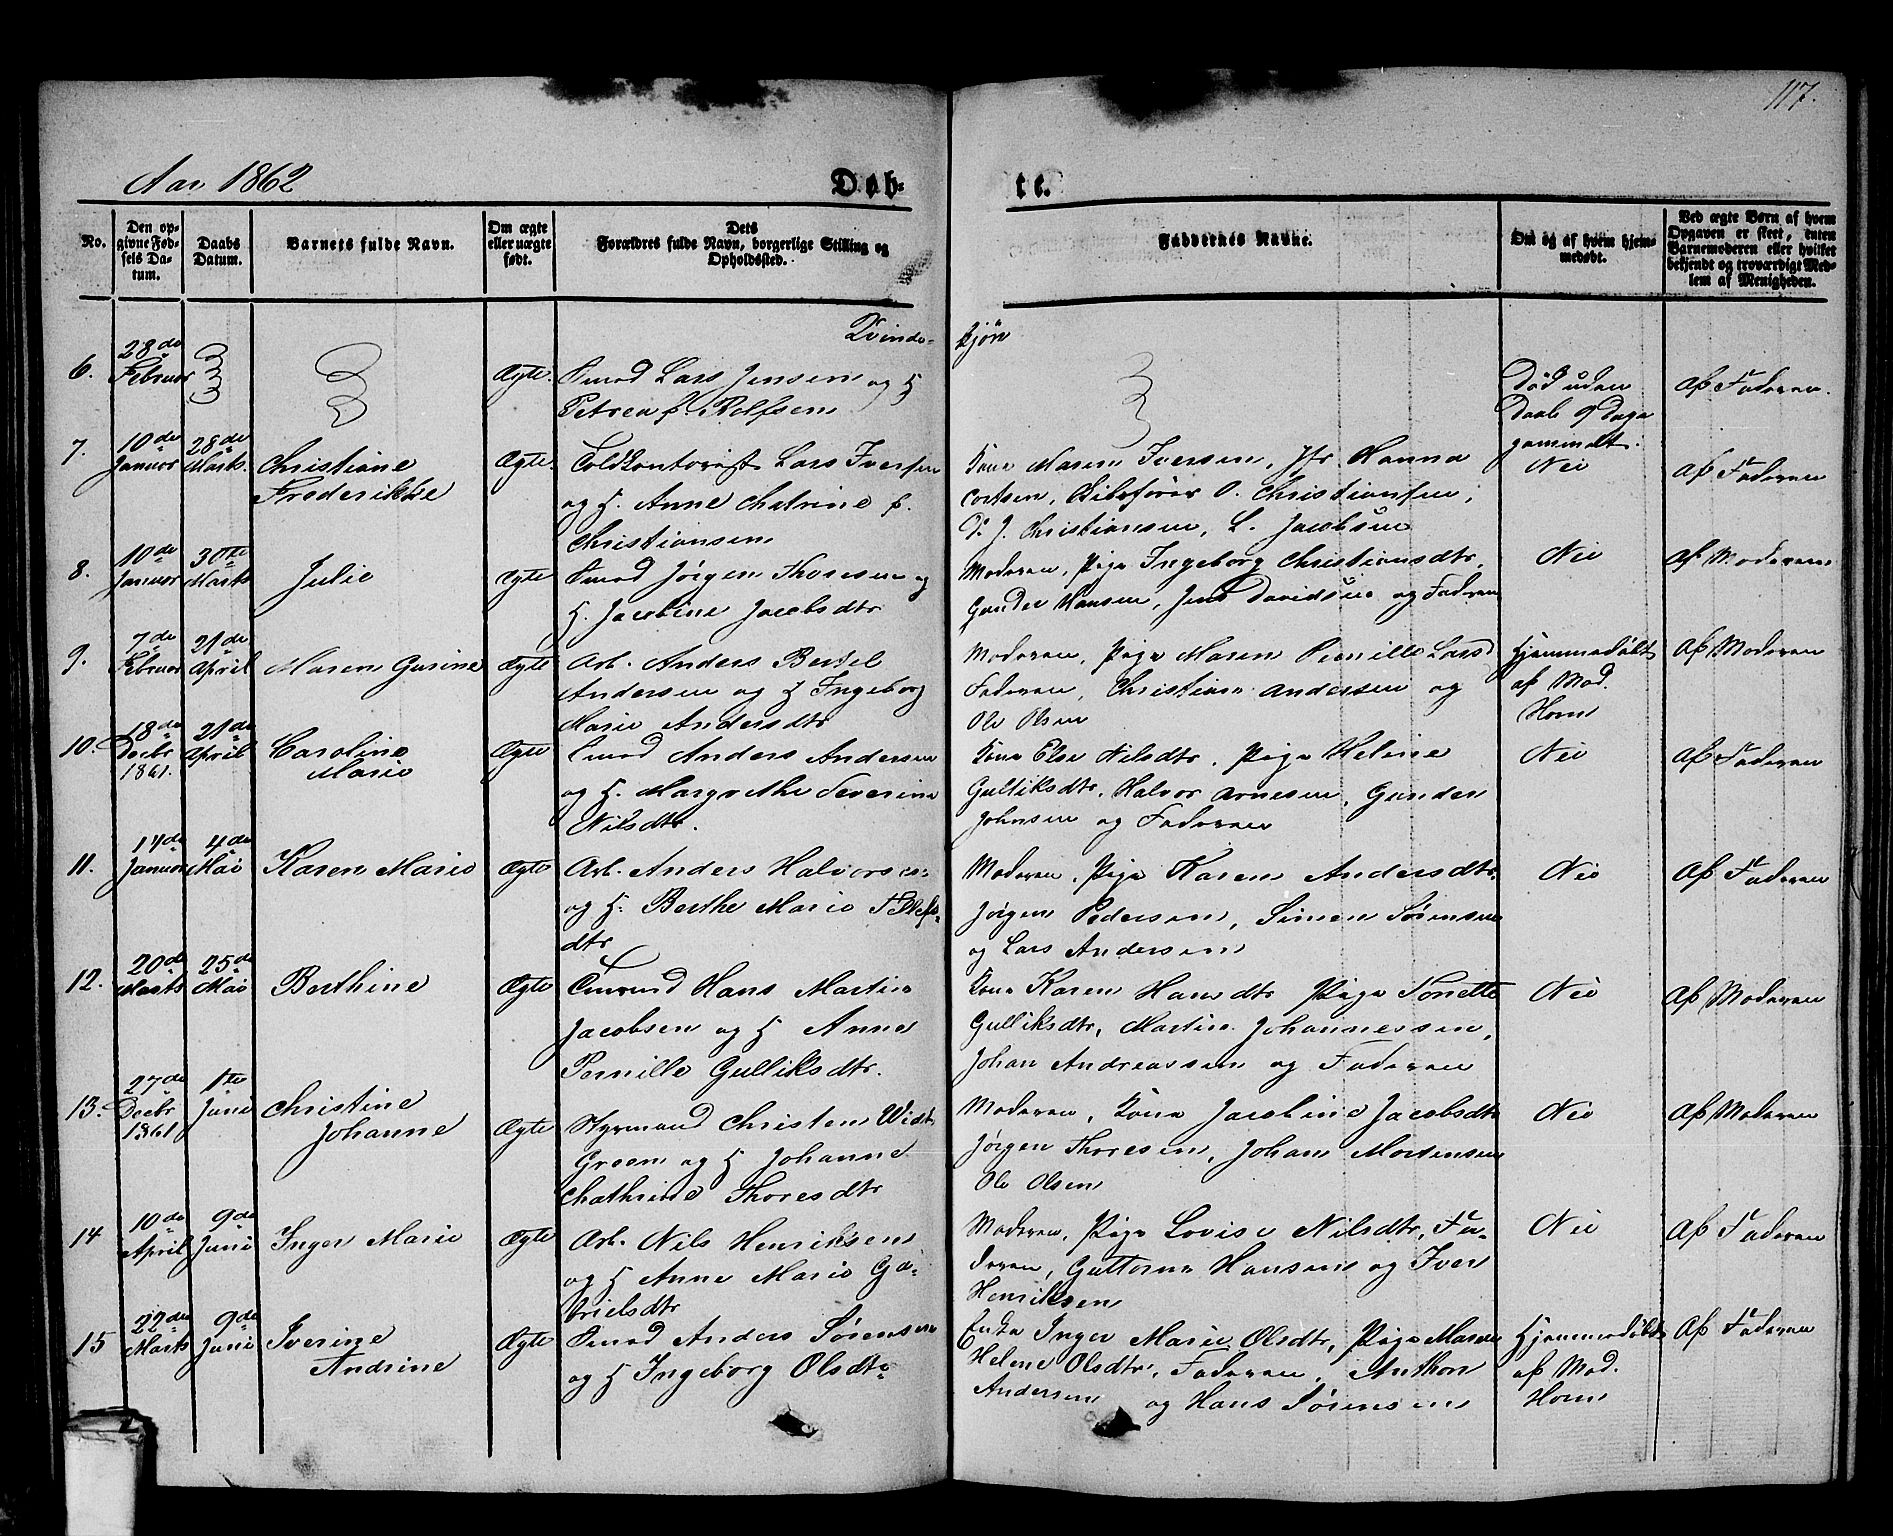 117.
Aar 1862
Døb-
te.
No.
Den op-
givne Fød-
sels Da-
tum.
Daabs
Datum.
Barnets fulde Navn.
Om ægte
eller uægte
født.
Dets
Forældres fulde Navn, borgerlige Stilling og
Opholdssted.
Faddernes Navne.
Om og af hvem hjem-
medøbt.
Ved ægte Børn af hvem
Opgaven er skeet, enten
Barnemoderen eller hvilket
bekjendt og troværdigt Med-
lem af Menigheden.
Qvinde-
kjøn
6.
28de
Februar
Ægte.
Smed Lars Jensen og H
Petrea f. Rolfsen
Død uden
Daab 9 Dage
gammelt.
Af Faderen.
7.
10de
Januar
28de
Marts.
Christiane
Frederikke
Ægte.
Toldkontorist Lars Iversen
og H. Anne Chatrine f.
Christiansen
Kone Maren Iversen, Jfr Hanna
Cortsen, Skibsfører O. Christiansen,
P. J. Christiansen, L. Jacobsen
Nei
Af Faderen
8.
10de
Januar
30te
Marts
Julie
Ægte
Smed Jørgen Thoresen og
H. Jacobine Jacobsdtr
Moderen, Pige Ingeborg Christiansdtr,
Gunder Hansen, Jens Davidsen og Faderen
Nei
Af Moderen
9.
7de
Februar
21de
April
Maren Gusine
Ægte
Arb. Anders Bertel
Andersen og H Ingeborg
Marie Andersdtr
Moderen, Pige Maren Pernille Larsd
Faderen, Christian Andersen og
Ole Olsen
Hjemmedøbt
af Mad.
Horn
Af Moderen
10.
18de
Decbr
1861.
21de
April
Caroline
Marie
Ægte
Smed Anders Andersen
og H. Margrethe Severine
Nilsdtr.
Kone Else Nilsdtr, Pige Heline
Gulliksdtr, Halvor Arnesen, Gunder
Johnsen og Faderen
Nei
Af Faderen
11.
14de
Januar
4de
Mai
Karen Marie
Ægte
Arb. Anders Halvorsen
og H. Berthe Marie Tellefs-
dtr
Moderen, Pige Karen Andersdtr,
Jørgen Pedersen, Simen Sørensen
og Lars Andersen
Nei
Af Faderen
12.
20de
Marts
25de
Mai
Berthine
Ægte
Tmrmd Hans Martin
Jacobsen og H Anne
Pernille Gulliksdtr.
Kone Karen Hansdtr Pige Tonette
Gulliksdtr, Martin Johannesen,
Johan Andreassen og Faderen
Nei
Af Moderen
13.
27de
Decbr
1861
1te
Juni
Christine
Johanne
Ægte
Styrmand Christen Widt
Green og H Johanne
Chathrine Thoresdtr
Moderen, Kone Jacobine Jacobsdtr
Jørgen Thoresen, Johan Mortensen
Ole Olsen
Nei
Af Moderen
14
10de
April
9de
Juni
Inger Marie
Ægte
Arb. Nils Henriksen
og H Anne Marie Ga-
brielsdtr
Moderen, Pige Lovise Nilsdtr, Fa-
deren, Guttorm Hansen og Iver
Henriksen
Nei
Af Faderen
15
22de
Marts
9de
Juni
Iverine
Andrine
Ægte
Smed Anders Sørensen
og H Ingeborg Olsdtr
Enke Inger Marie Olsdtr, Pige Maren
Helene Olsdtr, Faderen, Anthon
Andersen og Hans Sørensen
Hjemmedøbt
af Mad.
Horn
Af Faderen